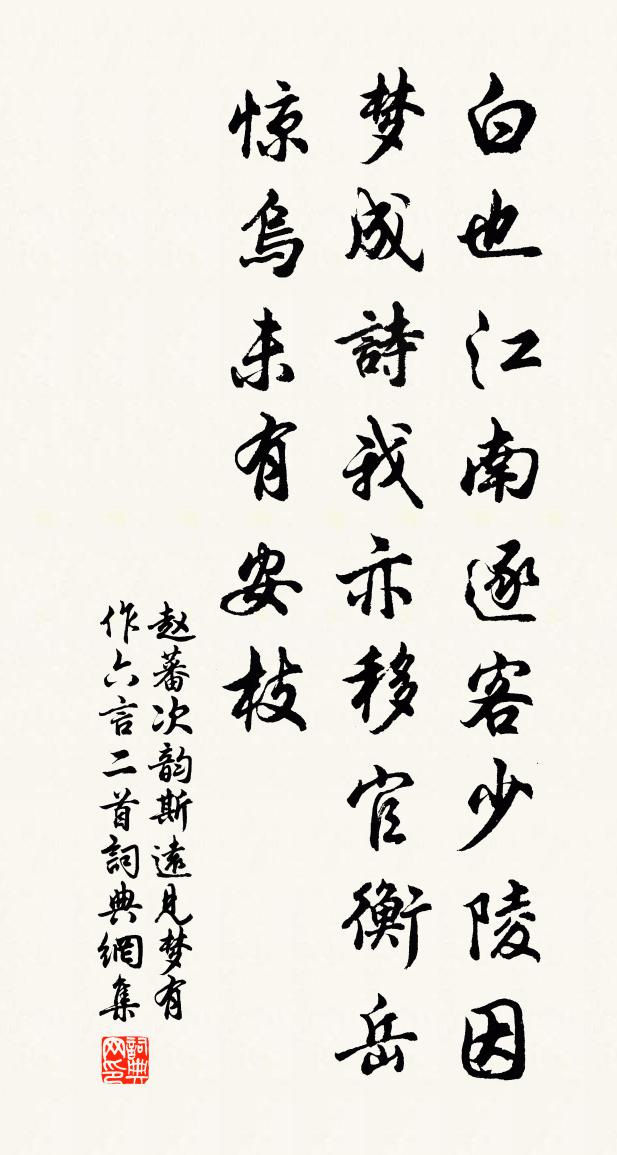 白也江南逐客少陵因
梦成詩我亦移官衡岳
惊烏未有安枝
赵蕃次韵斯遠見梦有
作六言二首詞典網集
詞典
网印